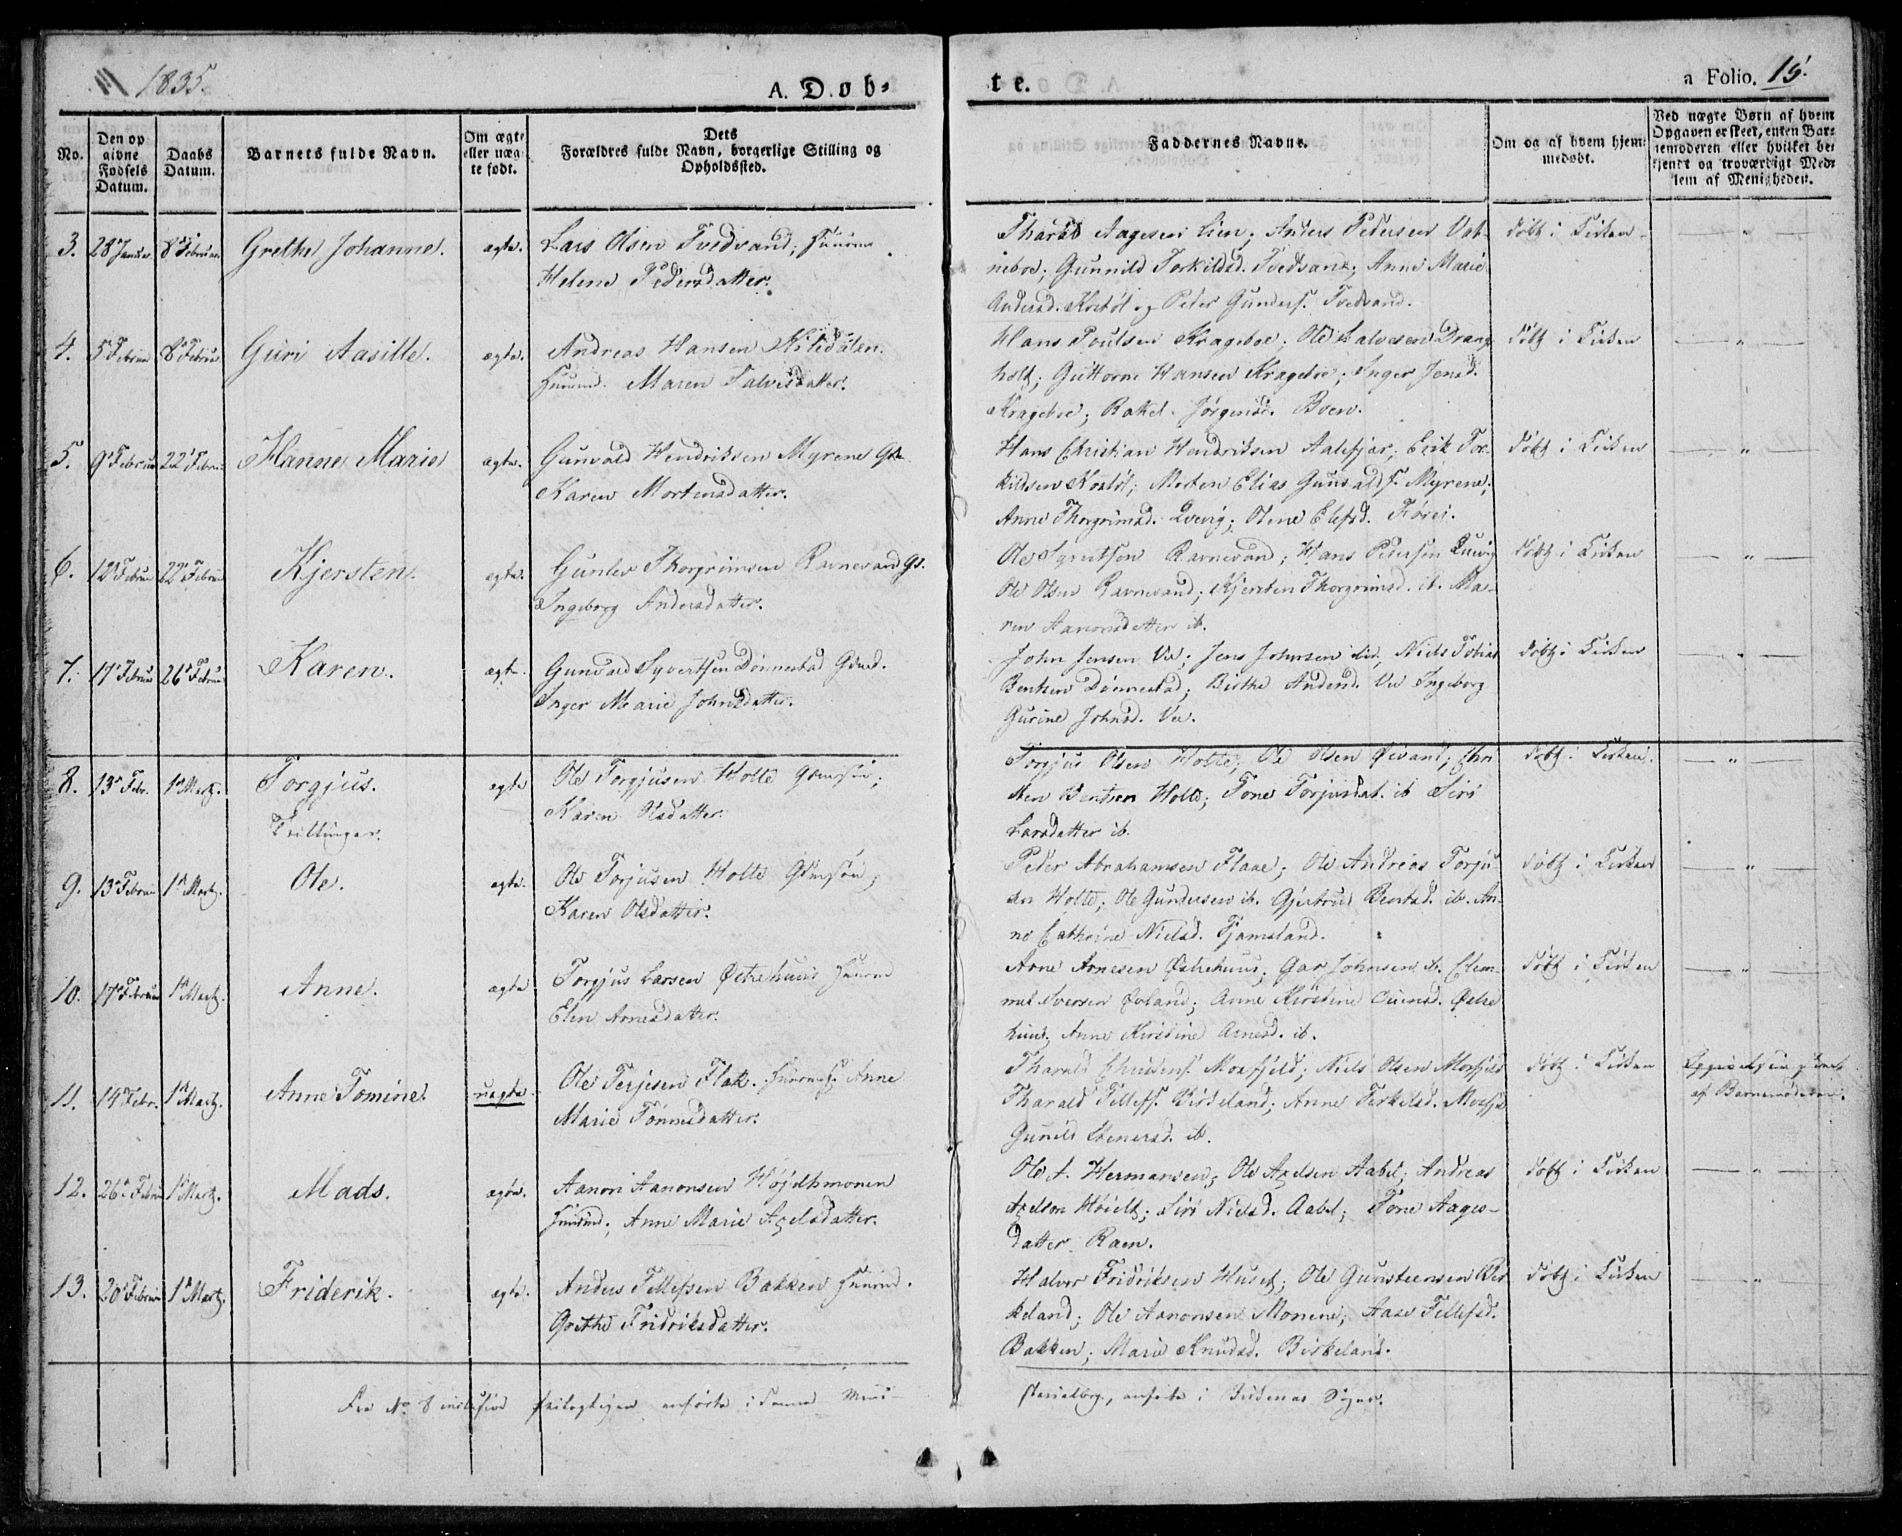 1835.
A. Døb-
te.
a Folio. 15.
No.
Den opgivne Fødsels Datum.
Daabs Datum.
Barnets fulde Navn.
Om ægte eller uægte født.
Dets Forældres fulde Navn, borgerlige Stilling og Opholdssted.
Faddernes Navne.
Om og af hvem hjemmedøbt.
Ved uægte Børn af hvem Opgaven er skeet, enten Barnemoderen eller hvilket bekjendt og troværdigt Medlem af Menigheden.
3. 28 Januar. 8 Februar. Grethe Johanne. ægte. Lars Olsen Tvedvand; Huusm.
Helene Pedersdatter.
Aagesen Lien; Anders Pedersen Vat-
neboe; Gunnild Torkildsd. Tvedvand; Anne Marie
Andersd. Kostøl og Peder Gunders. Tvedvand.
døbt i Kirken
4. 5 Februar 8 Februar. Guri Aasille. ægte. Andreas Hansen
Huusmd. Maren Talvesdatter.
Hans Poulsen Krageboe; Ole Drang-
holt; Guttorm Hansen Krageboe; Inger Jensd.
Krageboe; Rakel Jørgensd. Boen.
døbt i Kirken
5. 9 Februar 22 Febru Hanne Marie ægte. Gunvald Hendriksen Myrene
Karen Mortensdatter.
Hans Christian Hendriksen Aalefjær; Erik Tor-
kildsen Kostøl; Morten Elias Gunvalds. Myrene;
Anne Thorgrimsd. Qvevig; Oline Elefsd.
døbt i Kirken
6. 12 Februar 22 Februar Kjersten. ægte. Gunlev Thorgrimsen Ravnevand Gs.
Ingeborg Andersdatter.
Ole Syvertsen Ravnevand; Hans Pedersen Qvevig
Ole Olsen Ravnevand; Kjersten Thorgrimsd. ib. Ma-
ren Aanonsdatter ib.
døbt i Kirken
7. 17 Februar 26 Februar Karen. ægte. Gunvald Syvertsen Dønnestad
Inger Marie Johnsdatter.
John Jensen Vee; Jens Johnsen ib, Niels Tobias
Bentsen Dønnestad; Birthe Andersd. Vee Ingeborg
Gurine Johnsd. Vee.
døbt i Kirken
8. 13 Febr. 1 Martz. Torgjus. ægte Ole Torgjusen Holte
Trillinger. Karen Olsdatter.
Torgjus Olsen Holte; Ole Olsen Chri-
sten Bentsen Holte; Tone Torjusdat. ib Siri
Larsdatter ib.
døbt i Kirken.
9. 13 Februar 1 Martz. Ole. ægte. Ole Torjusen Holte
Karen Olsdatter.
Peder Abrahamsen Flaae; Ole Andreas Torju-
sen Holte; Ole Gundersen ib. Gjertrud Bentsd. ib. An-
ne Cathrine Nielsd. Tjomsland.
døbt i Kirken
10. 17 Februar 1 Martz. Anne. ægte Torgjus Larsen Østrehuus Huusm
Elen Arnesdatter.
Arne Arnesen Østrehuus; Johnsen ib. Clem-
met Iversen Øvland; Anne Kirstine Østre
huus; Anne Kirstine Arnesd. ib.
døbt i Kirken
11. 14 Febr. 1 Martz. Anne Tomine. uægte. Ole Terjesen Flak. Anne
Marie Tønnesdatter.
Tharald Mosfjeld; Niels Olsen Mosfjeld
Tharald Tellefs. Birkeland; Anne Terkelsd.
Gunild ib.
døbt i Kirken
af Barnemoderen.
12. 26 Februar 1 Martz. Mads. ægte. Aanon Aanonsen
Huusmd; Anne Marie Axelsdatter.
Ole A. Hermansen; Ole Axelsen Aabel; Andreas
Axelsen Siri Nielsd. Aabel; Tone Aages-
datter Raen.
døbt i Kirken
13. 20 Februar 1 Martz. Friderik. ægte. Anders Tellefsen Bakken Huusmd.
Grethe Fridriksdatter.
Halvor Fridriksen Huset; Ole Gunsteensen Bir-
keland; Ole Aanonsen Monene; Aase Tellefsd.
Bakken; Marie Knudsd. Birkeland.
døbt i Kirken
Fra No 8 inclusive anførte i denne Mini-
sterialbog, anførte i Sogn.